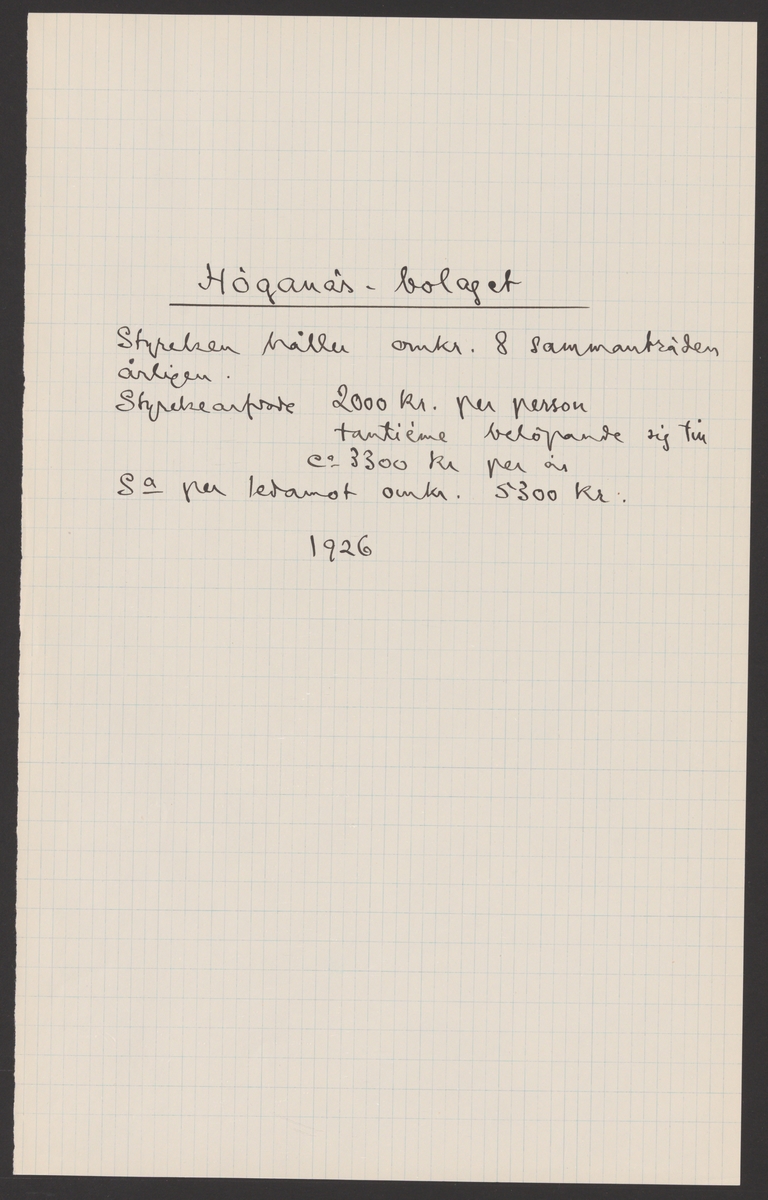 Höganäs - bolaget
Styrelsen håller omkr. 8 sammanträden
årligen.
Styrelsearfvode 2000 kr. per person
tantième belöpande sig till
ca 3300 kr per år
Sa per ledamot omkr. 5300 kr.
1926